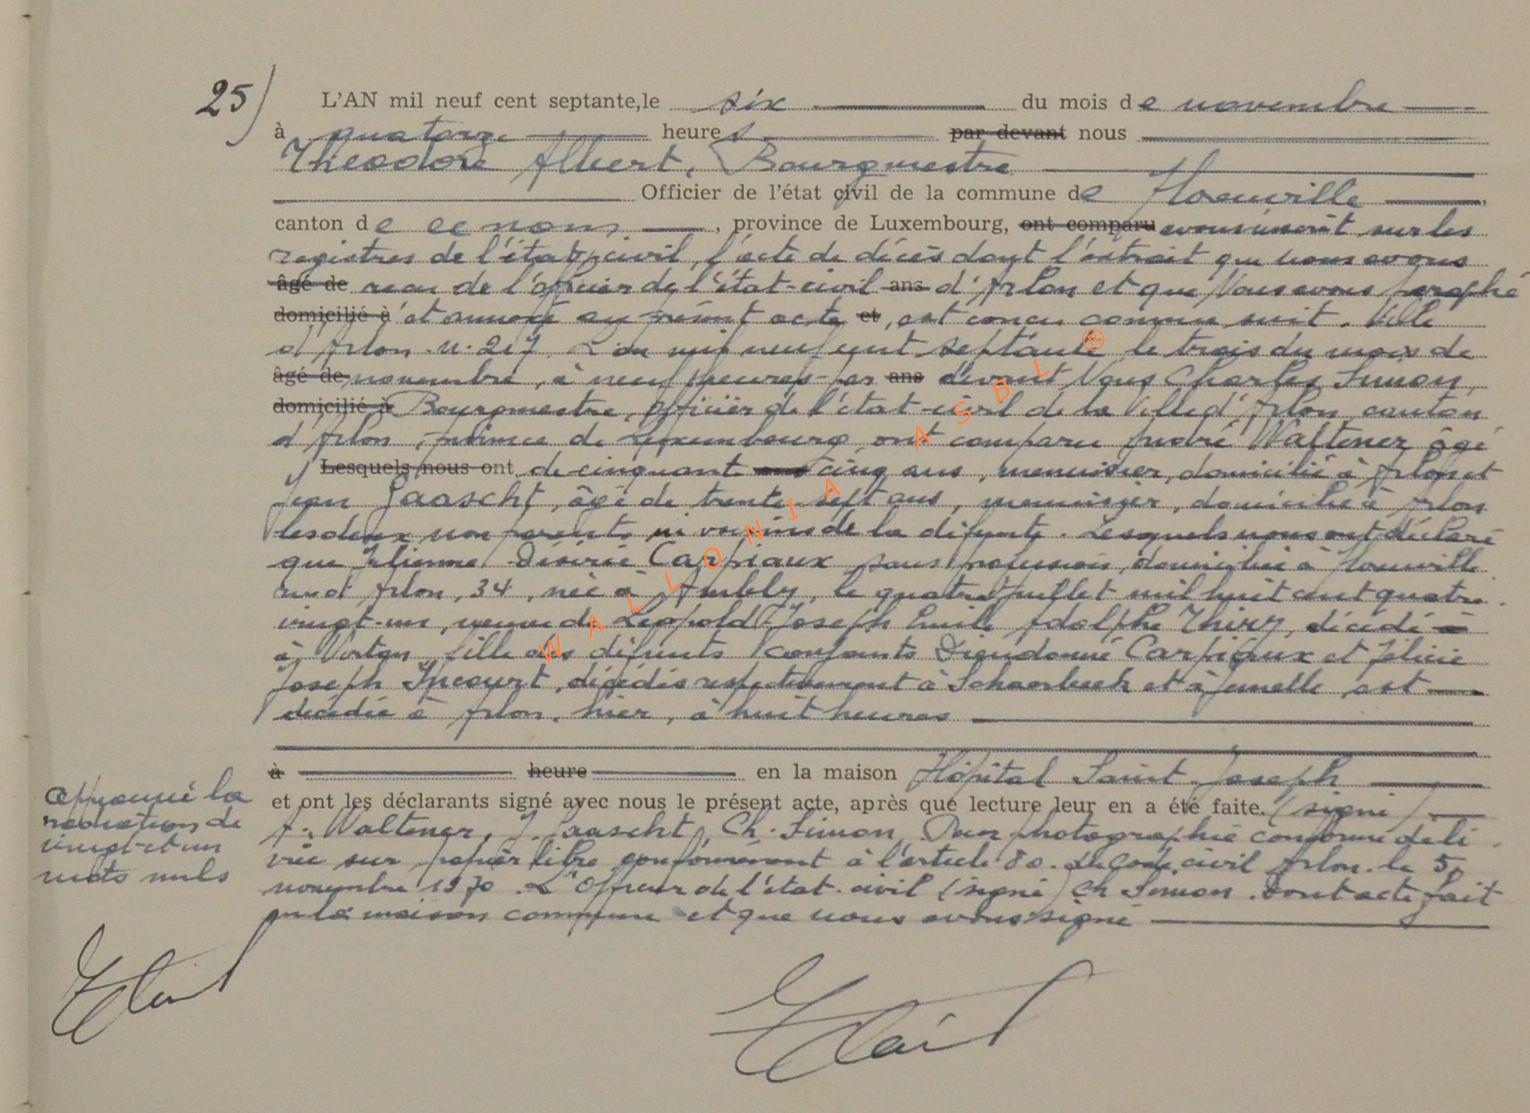 25) L'AN mil neuf cent septante, le six du mois de novembre
à quatorze heures par devant nous
Théodore Albert, Bourgmestre
Officier de l'état civil de la commune de Houville
canton de ce nom, province de Luxembourg, ont comparu avons inscrit sur les
registres de l'état-civil, l'acte de décès dont l'extrait que nous avons
âgé de reçu de l'officier de l'état-civil ans d'Arlon et que Nous avons paraphé
domicilié à et annexé au présent acte et, est conçu comme suit. Ville
d'Arlon. n. 217 L'an mil neuf cent septante le trois du mois de
âgé de novembre, à neuf heures par ans devant Nous Charles Simon,
domicilié à Bourgmestre, officier de l'état-civil de la Ville d'Arlon, canton
d'Arlon, province de Luxembourg, ont comparu André Waltener âgé
Lesquels nous ont de cinquant cinq ans, menuisier, domicilié à Arlon et
Jean Jaascht, âgé de trente-sept ans, menuisier, domicilié à Arlon
les deux non parents ni voisins de la défunte. Lesquels nous ont déclaré
que Désirée Carpiaux sans profession, domiciliée à
rue d'Arlon, 34, née à Ambly, le quatre juillet mil huit cent quatre
vingt-un, veuve de Léopold Joseph Emile Adolphe Thiry, décédé
à Virton, fille des défunts conjoints Dieudonné Carpiaux et Félicie
Joseph Incourt, décédés respectivement à Schaerbeek et à Jemelle, est
décédée à Arlon, hier, à huit heures
à heure en la maison Hôpital Saint Joseph
et ont les déclarants signé avec nous le présent acte, après que lecture leur en a été faite. (signé)
A. Waltener, J. Jaascht, Ch. Simon, Pour photographie conforme déli
vrée sur papier libre conformément à l'article 80 du Code civil Arlon le 5
novembre 1970. L'Officier de l'état-civil (signé) Ch Simon. Dont acte fait
en la maison commune et que nous avons signé
approuvé la
radiation de
vingt-et-un
mots nuls
WALLONIA ASBL ®